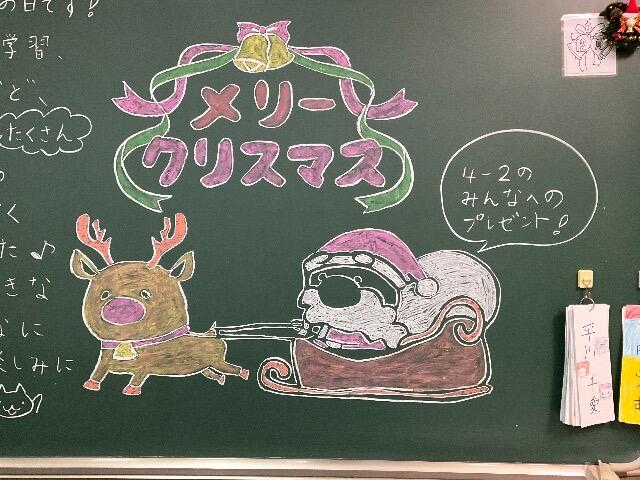 の日です!
学習、
ど、
たくさん
く
た♪
きな
に
しみに
メリー
クリスマス
4-2の
みんなへの
プレゼント!